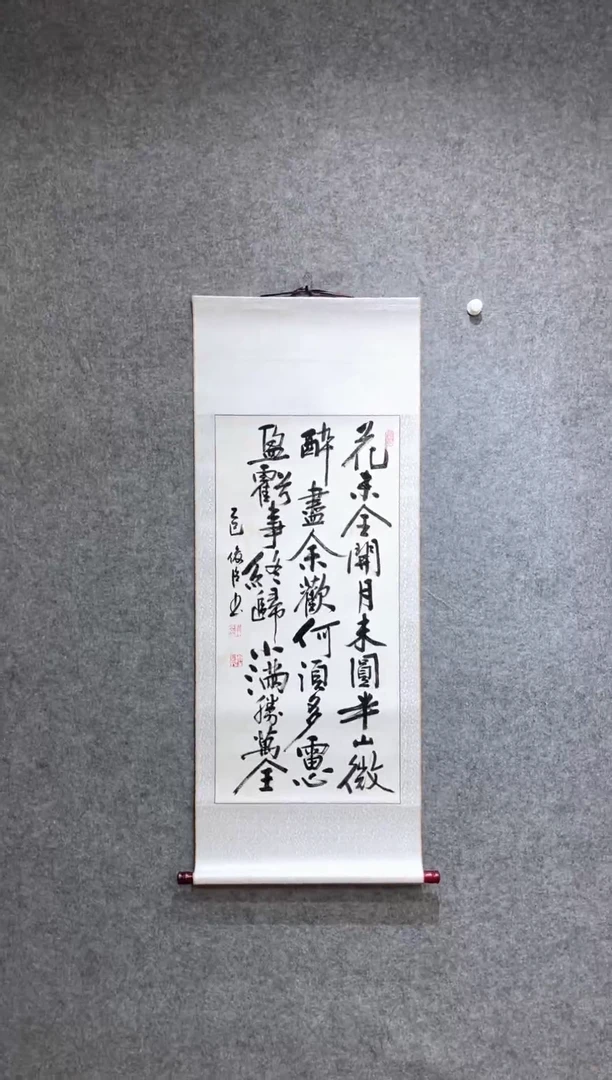 花未全開月未圓半山微
醉盡余歡何須多慮
盈虧事終歸小滿勝萬全
乙巳 俊臣书